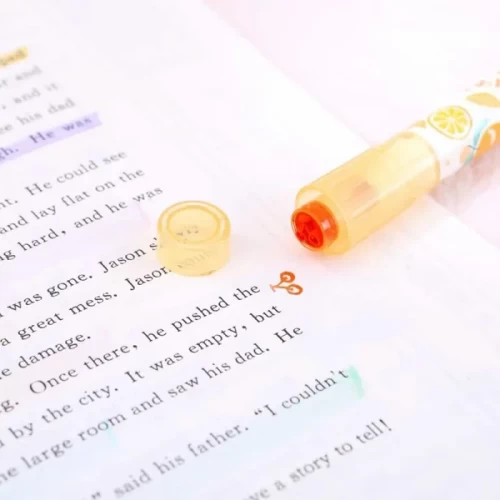 and
, and it
e his dad
gh. He was
nt. He could see
and lay flat on the
g hard, and he was
was gone. Jason s
a great mess. Jason
e damage.
g. Once there, he pushed the
by the city. It was empty, but
he large room and saw his dad. He
" said his father. "I couldn't
ve a story to tell!